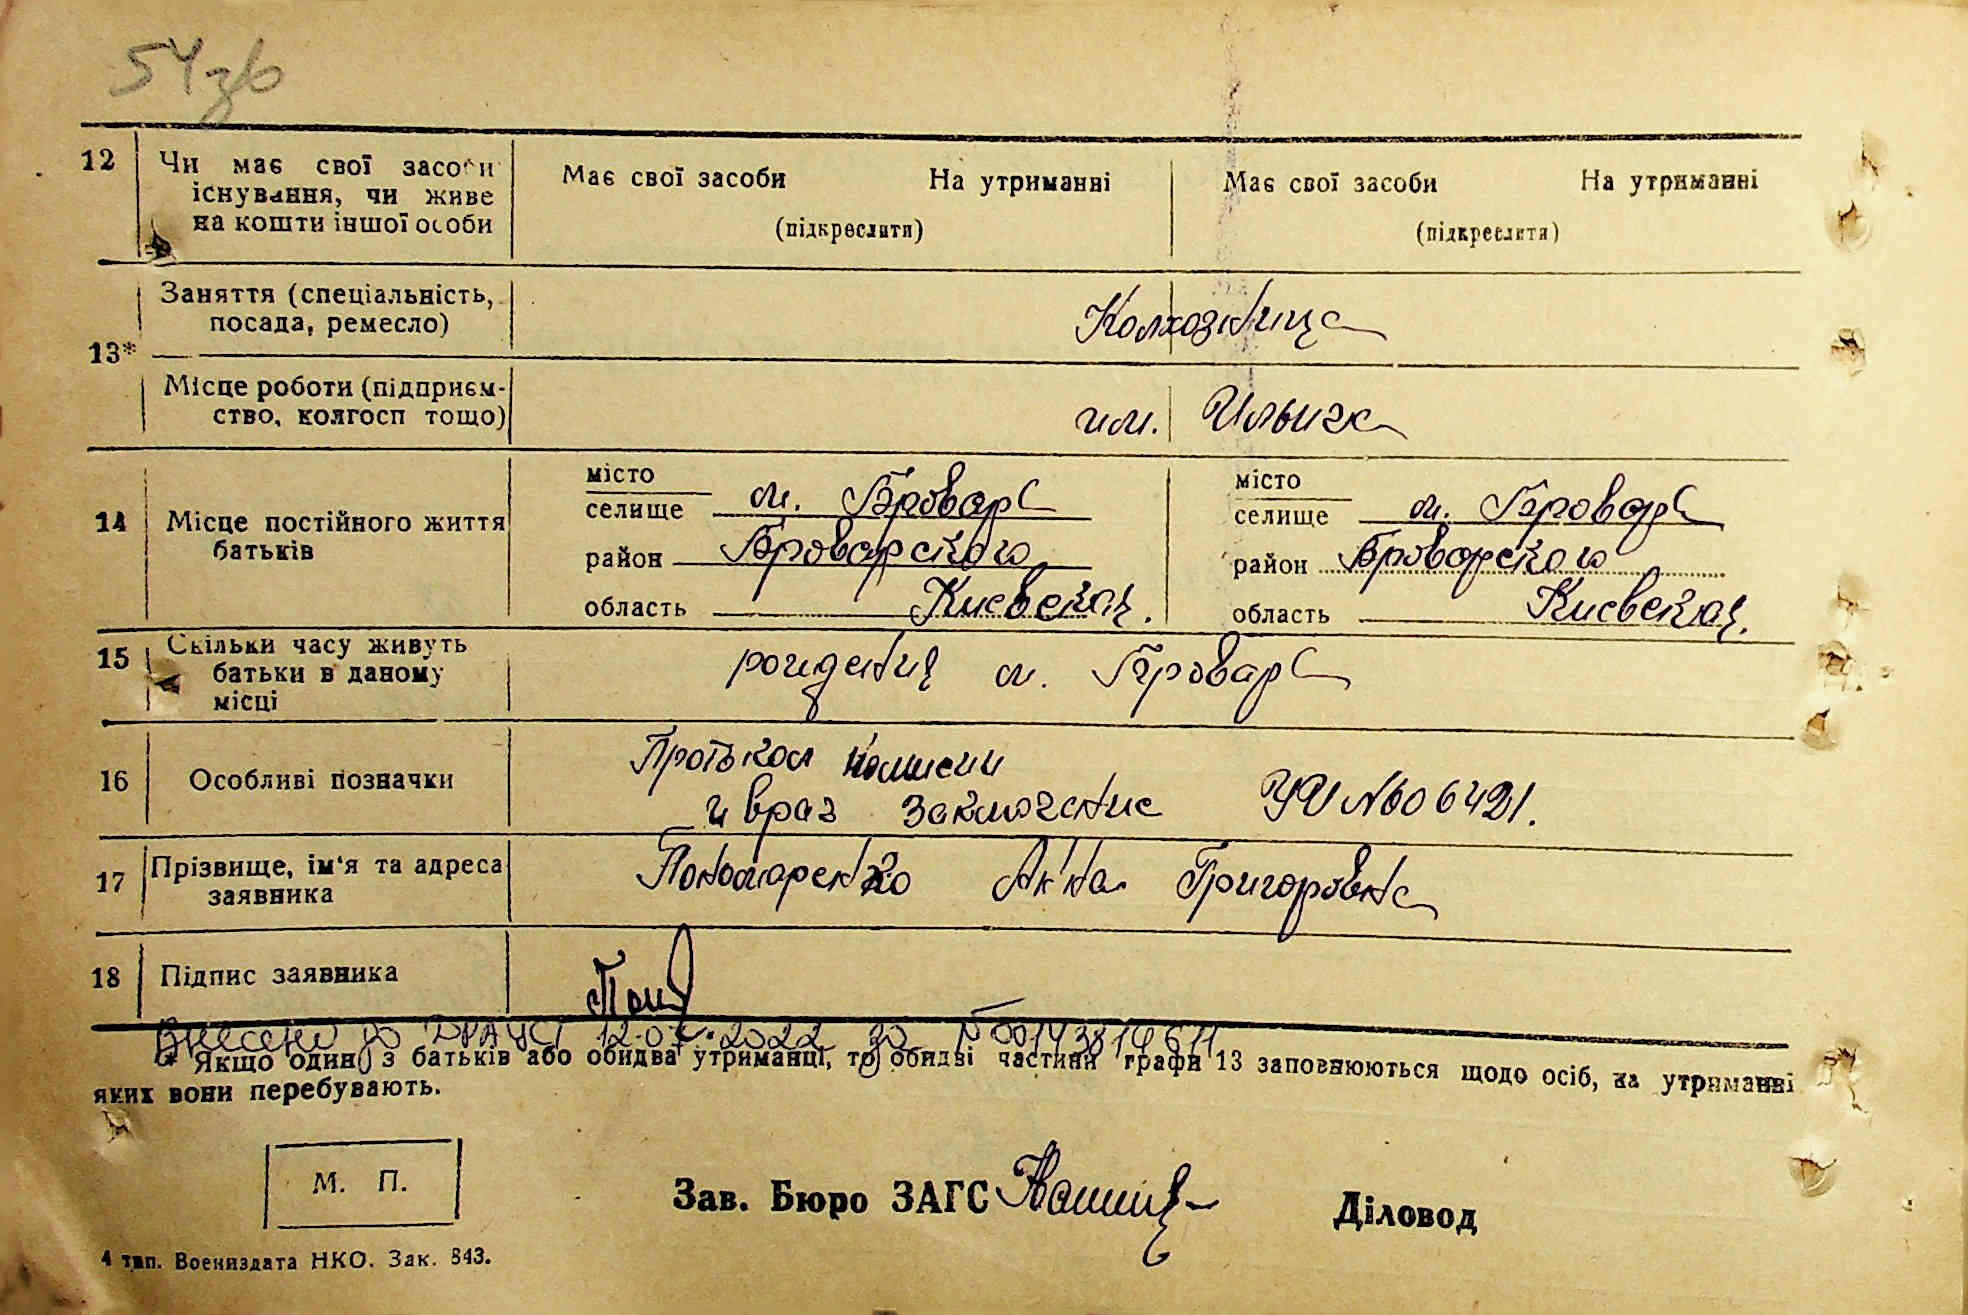 54зв
12 Чи має свої засоби Має свої засоби На утриманні Має свої засоби На утриманні
існування, чи живе
на кошти іншої особи (підкреслити) (підкреслити)
Заняття (спеціальність, Колхозница
посада, ремесло)
13*
Місце роботи (підприєм-
ство, колгосп тощо) им. Ильича
місто місто
селище м. Бровары селище м. Бровары
14 Місце постійного життя
батьків
район Броварского район Броварского
область Киевская. область Киевская.
15 Скільки часу живуть рождения м. Бровары
батьки в даному
місці
Протокол комисии
16 Особливі позначки и враз заключение УЧ №606421.
17 Прізвище, ім'я та адреса Пономаренко Анна Григоровна
заявника
18 Підпис заявника
Внесено до ДРАЦСГ 2022 за №00143814611
* Якщо один з батьків або обидва утриманці, то обидві частини графи 13 заповнюються щодо осіб, на утриманні
яких вони перебувають.
М. П.
Зав. Бюро ЗАГС Діловод
4 тип. Воениздата НКО. Зак. 843.